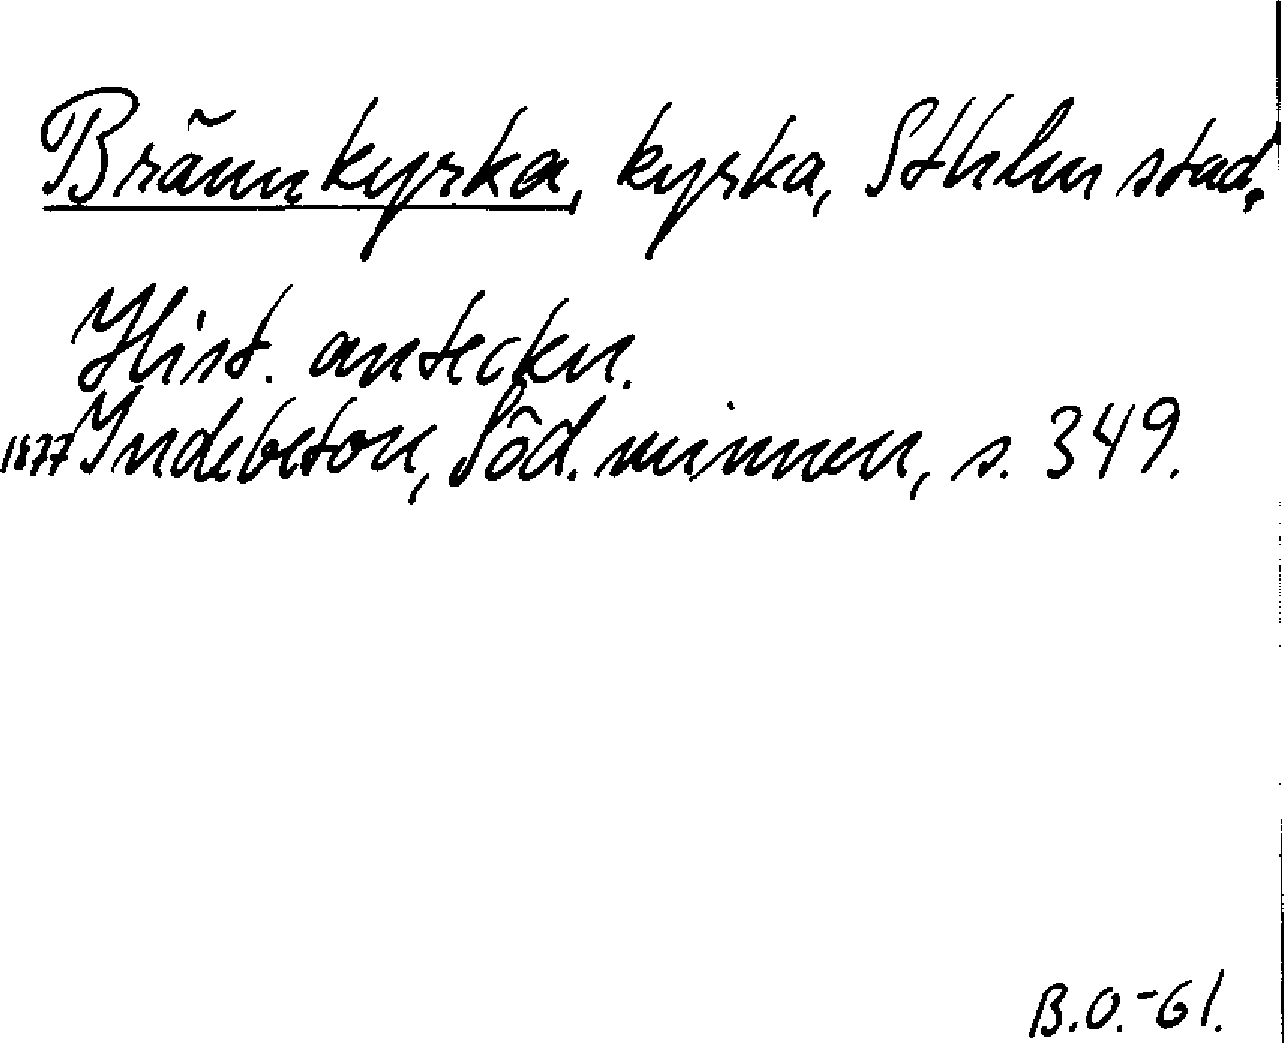 Brännkyrka, kyrka, Sthlm stad.
Hist. anteckn.
1877 Indebetou, Söd. minnen, s. 349.
B.O.-61.